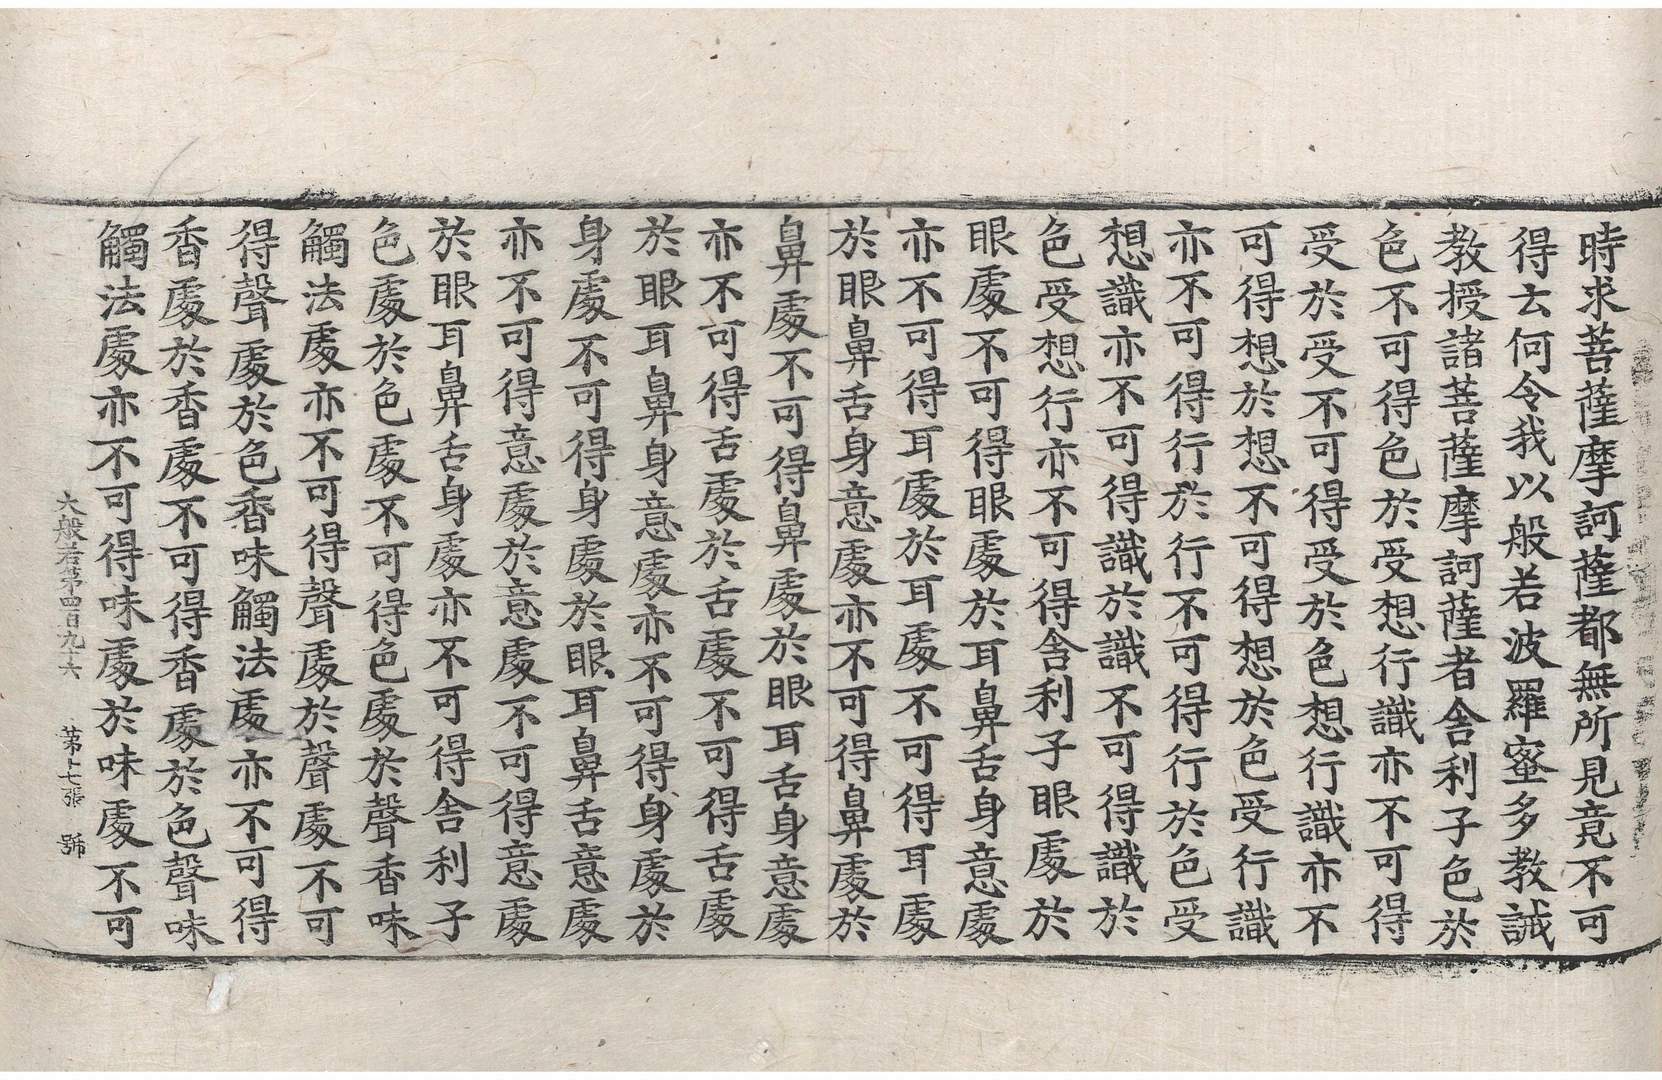 時求菩薩摩訶薩都無所見竟不可
得云何令我以般若波羅蜜多教誡
教授諸菩薩摩訶薩者舍利子色於
色不可得色於受想行識亦不可得
受於受不可得受於色想行識亦不
可得想於想不可得想於色受行識
亦不可得行於行不可得行於色受
想識亦不可得識於識不可得識於
色受想行亦不可得舍利子眼處於
眼處不可得眼處於耳鼻舌身意處
亦不可得耳處於耳處不可得耳處
於眼鼻舌身意處亦不可得鼻處於
鼻處不可得鼻處於眼耳舌身意處
亦不可得舌處於舌處不可得舌處
於眼耳鼻身意處亦不可得身處於
身處不可得身處於眼耳鼻舌意處
亦不可得意處於意處不可得意處
於眼耳鼻舌身處亦不可得舍利子
色處於色處不可得色處於聲香味
觸法處亦不可得聲處於聲處不可
得聲處於色香味觸法處亦不可得
香處於香處不可得香處於色聲味
觸法處亦不可得味處於味處不可
大般若第四百九六 第十七張 號